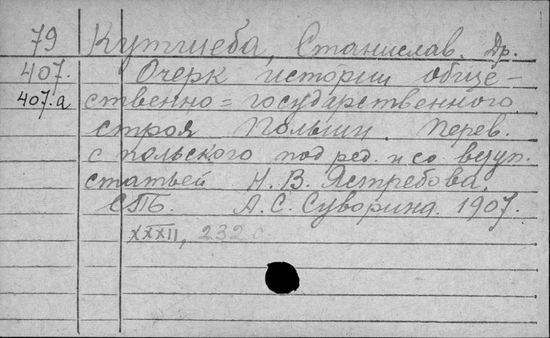 79 Кутшеба, Станислав. Др.
407. Очерк истории обще-
407.a ственно=государственного
строя Польши. Перев.
с польского под ред. и со вступ.
статьей Н. В. Ястребова.
СПБ. А. С. Суворина. 1907.
XXXII, 232 с.